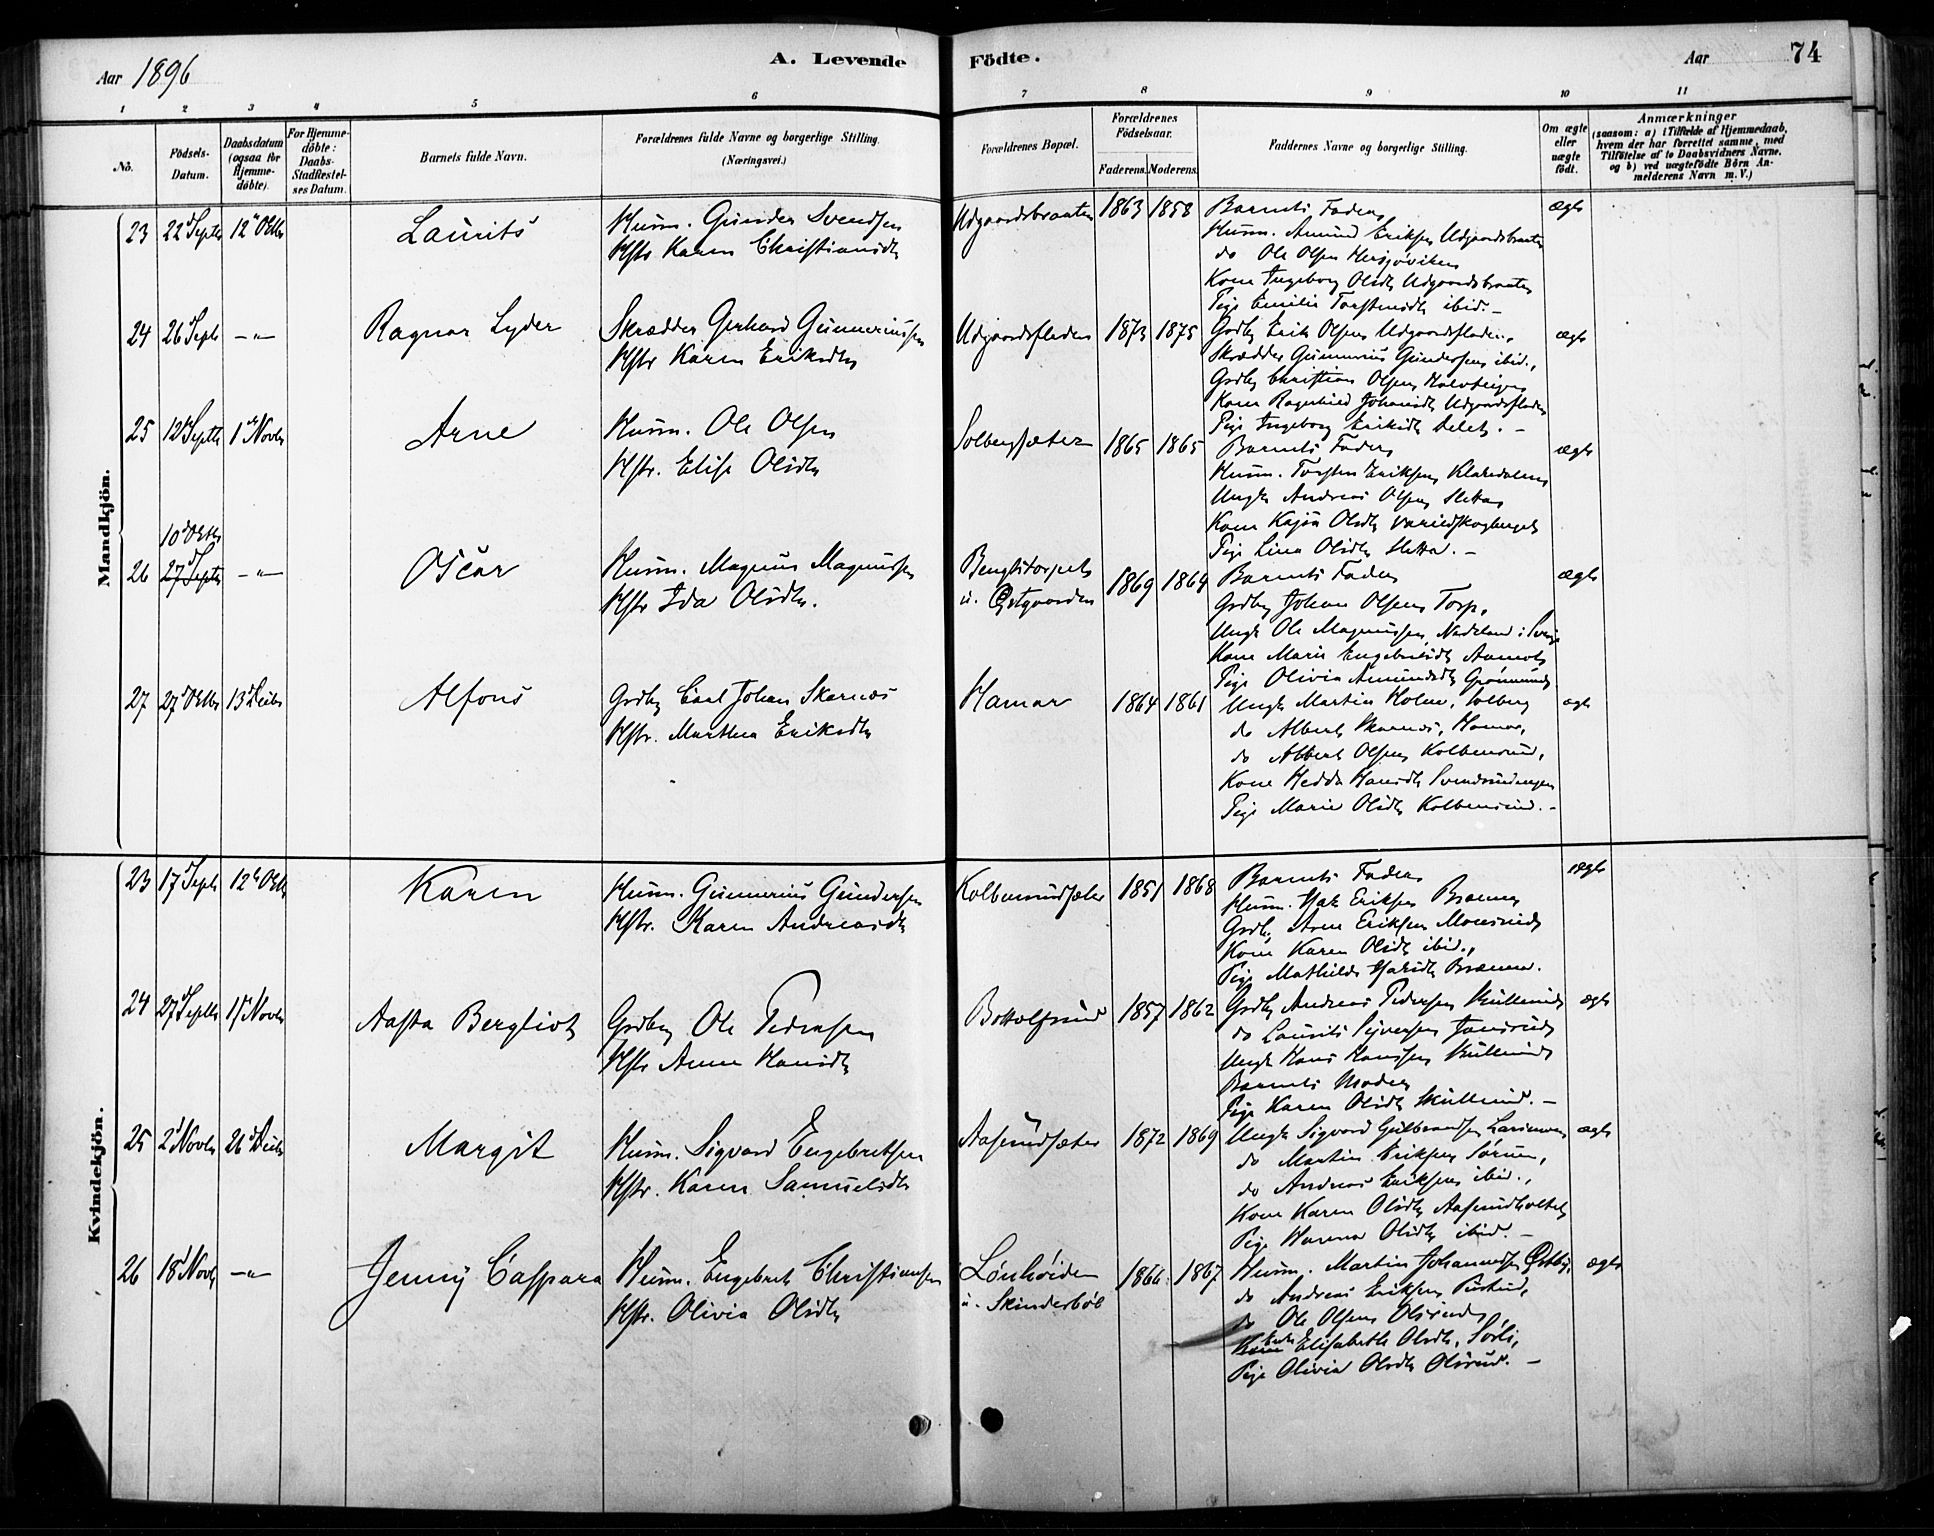 Aar 1896
A. Levende Födte.
Aar 74
1 2 3 4 5 6 7 8 9 10 11
No.
Födsels-Datum.
Daabsdatum (ogsaa for Hjemme-döbte).
For Hjemme-döbte: Daabs-Stadfæstel-ses Datum.
Barnets fulde Navn.
Forældrenes fulde Navne og borgerlige Stilling. (Næringsvei.)
Forældrenes Bopæl.
Forældrenes Födselsaar.
Faderens. Moderens.
Faddernes Navne og borgerlige Stilling.
Om ægte eller uægte födt.
Anmærkninger
(saasom: a) i Tilfælde af Hjemmedaab, hvem der har forrettet samme, med Tilföielse af to Daabsvidners Navne, og b) ved uægtefödte Börn An-melderens Navn m. V.)
Mandkjön.
23 22d Septbr 12te Oktbr Laurits
Husm. Gunder Svendsen
Hstr Karen Christiansdtr
Udgaardsbraaten 1863 1858
Barnets Fader,
Husm. Amund Eriksen Udgaardsbraaten
do Ole Olsen Hersjøviken
Kone Ingeborg Olsdtr Udgaardsbraaten
Pige Emilie Torstensdtr ibid. –
ægte
24 26d Septb –"– Ragnar Lyder
Skrædder Gerhard Gunneriussen
Hstr Karen Eriksdtr
Udgaardsfladen 1873 1875
Grdbr Erik Olsen Udgaardsfladen,
Skrædder Gunnerius Gundersen ibid.,
Grdbr Christian Olsen
Kone Ragnhild Johansdtr Udgaardsfladen
Pige Ingeborg Eriksdtr –
ægte
25 12d Septbr 1ste Novbr Arne
Husm. Ole Olsen
Hstr. Elise Olsdtr
Solbergsæter 1865 1865
Barnets Fader,
Husm. Torsten Eriksen
Ungk Andreas Olsen Sletta
Kone Kajsa Olsdtr
Pige Lina Olsdtr Sletta. –
ægte
26 10d Oktbr 27d Septbr –"– Oscar
Husm. Magnus Magnussen
Hstr Ida Olsdtr.
Bengtstorpet u. Østgaarden 1869 1864
Barnets Fader
Grdbr Johan Olsen Torp,
Ungk Ole Magnussen, i Sverige
Kone Marie Engebretsdtr
Pige Olivia Amundsdtr
ægte
27 27d Oktbr 13d Decbr Alfons
Grdbr Carl Johan Skarnæs
Hstr. Marthea Eriksdtr
Hamar 1864 1861
Ungk Martin Holm, Solberg
do Albert Skarnæs, Hamar,
do Albert Olsen Kolbensrud,
Kone Hedda Hansdtr
Pige Marie Olsdtr Kolbensrud. –
ægte
Kvindekjön.
23 17d Septb 12te Oktb Karen
Husm. Gunnerius Gundersen
Hstr. Karen Andreasdtr
Kolbensrudsæter 1851 1868
Barnets Fader
Husm. Eriksen
Grdb. Arne Eriksen
Kone Karen Olsdtr ibid.,
Pige Mathilde
ægte
24 27d Septbr 1ste Novbr Aasta Bergliot
Grdbr Ole Pedersen
Hstr Anne Hansdtr
Bottolfsrud 1857 1862
Grdbr Andreas Pedersen Skullerud
do Laurits Syversen
Ungk Hans Hansen Skullerud
Barnets Moder
Pige Karen Olsdtr Skullerud. –
ægte
25 2d Novbr 26d Decbr Margit
Husm. Sigvard Engebretsen
Hstr. Karen Samuelsdtr
Aaserudsæter 1872 1869
Ungk Sigvard Gulbrandsen
do Martin Eriksen Sørum,
do Andreas Eriksen ibid.,
Kone Karen Olsdtr Aaserudholtet
Pige Hanna Olsdtr ibid. –
ægte
26 18d Novb –"– Jenny Caspara
Husm. Engebret Christiansen
Hstr. Olivia Olsdtr
Lønhøiden u. Skinderböl 1866 1867
Husm. Martin Johannessen Østby,
do Andreas Eriksen
do Ole Olsen Olsrud,
Kone Enke Elisabeth Olsdtr, Sørli,
Pige Olivia Olsdtr Olsrud. –
ægte